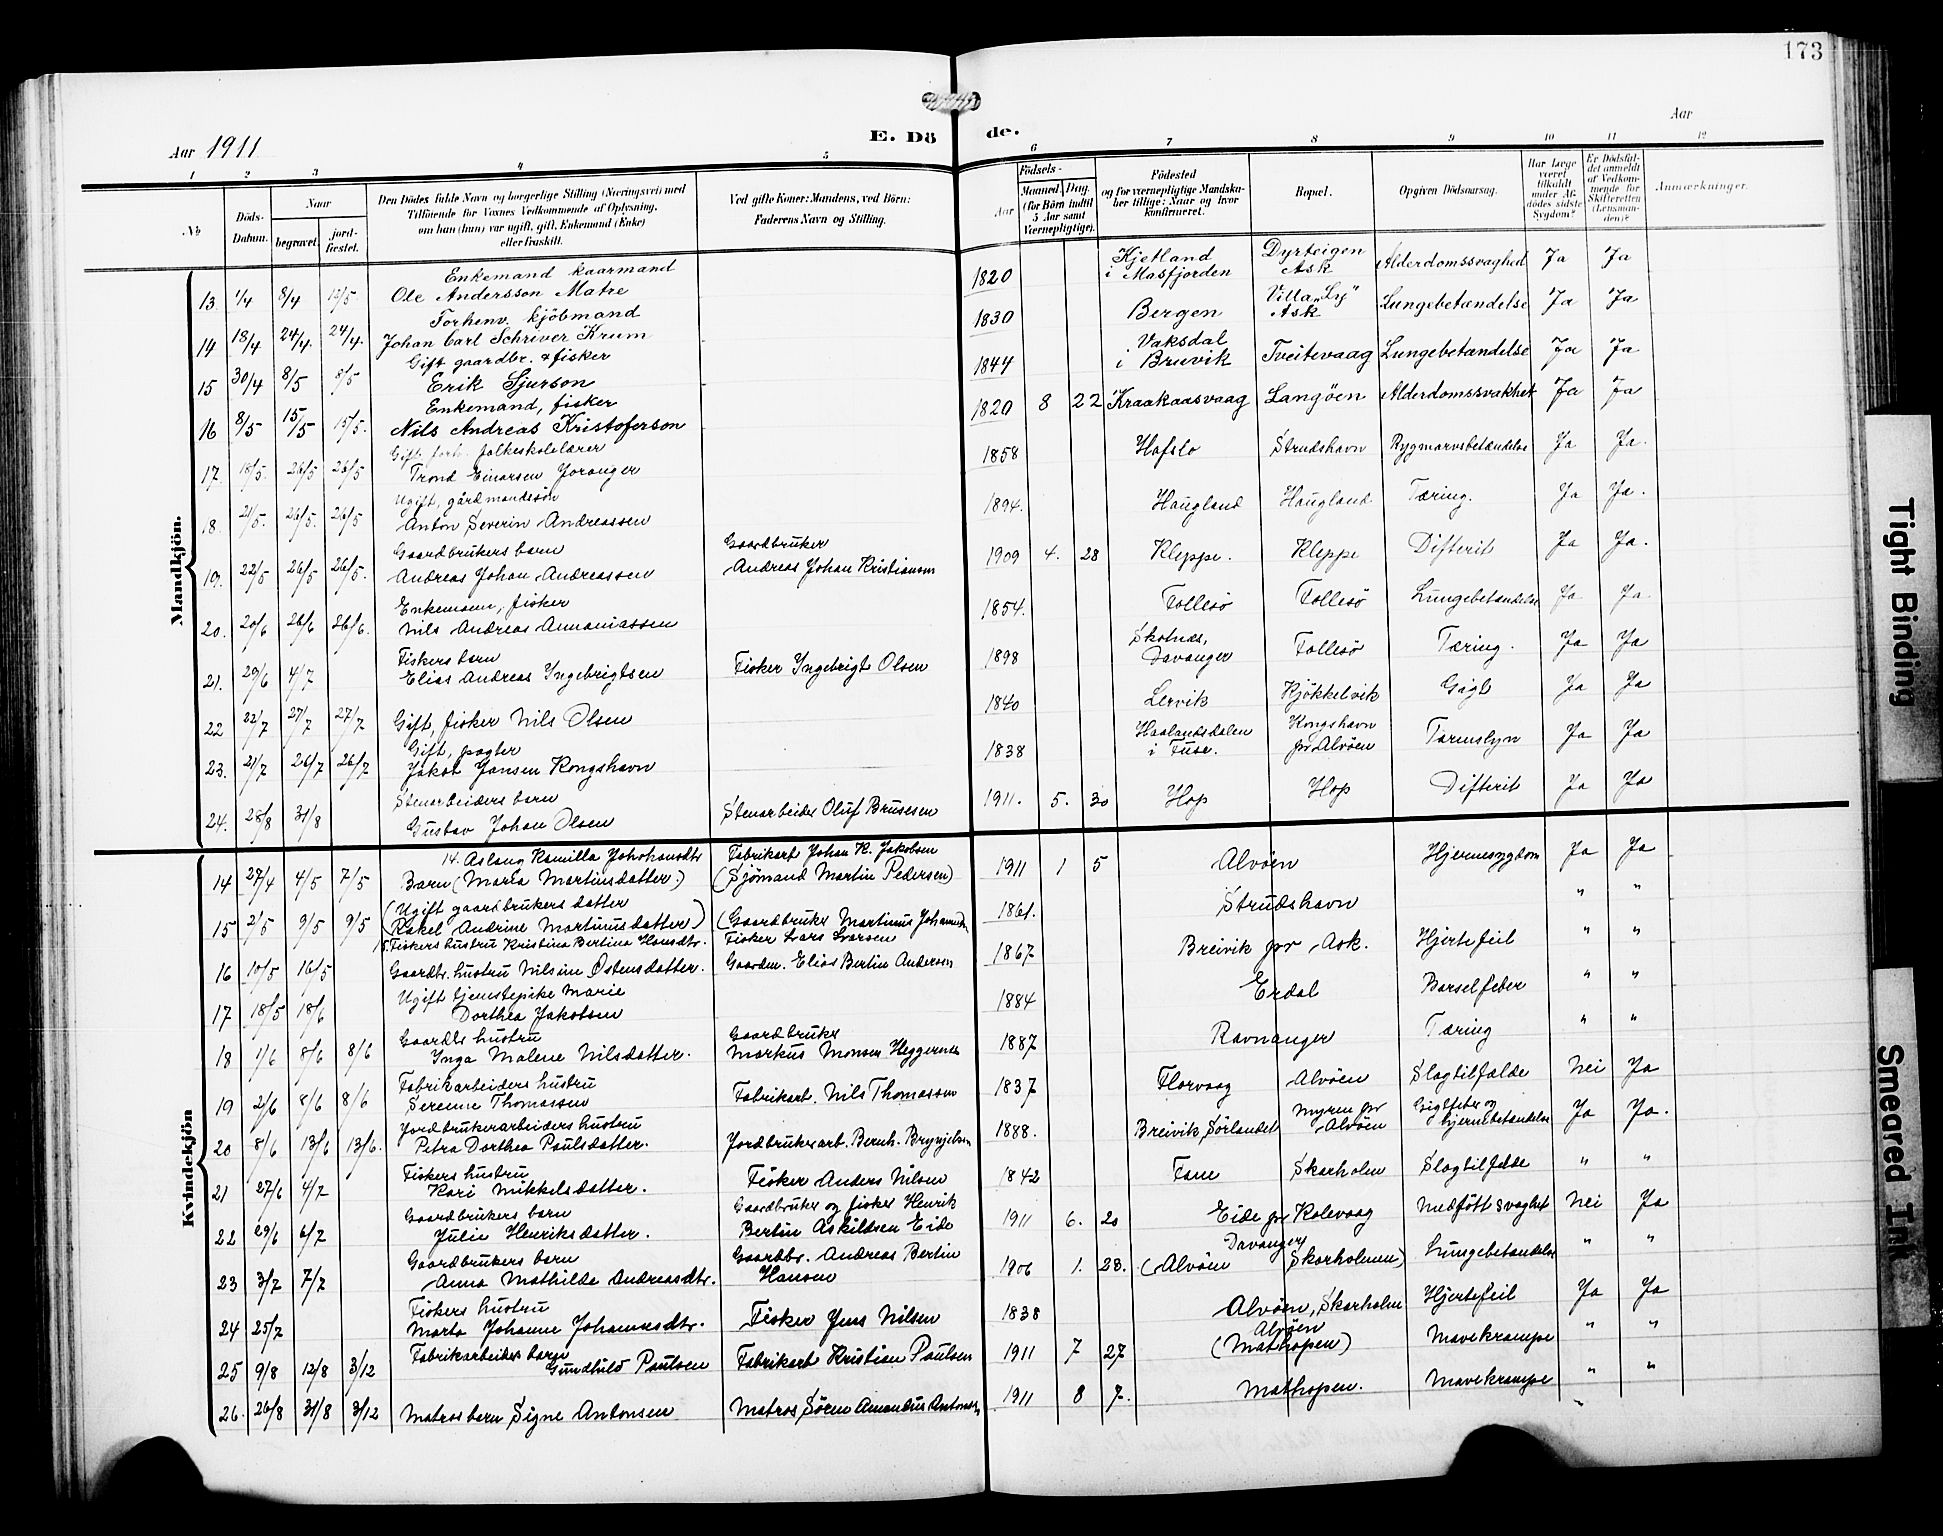 173
Aar 1911
E. Dö de.
Aar
1 2 3 4 5 6 7 8 9 10 11 12
No
Döds-Datum.
Naar
begravet.
jord-fæstet.
Den Dödes fulde Navn og borgerlige Stilling (Næringsvei) med
Tilföiende for Voxnes Vedkommende af Oplysning,
om han (hun) var ugift, gift, Enkemand (Enke)
eller fraskilt.
Ved gifte Koner: Mandens, ved Börn:
Faderens Navn og Stilling.
Födsels-
Aar
Maaned. Dag.
(for Börn indtil
5 Aar samt
Værnepligtige).
Födested
og for værnepligtige Mandska-
ber tillige: Naar og hvor
konfirmeret.
Bopæl.
Opgiven Dödsaarsag.
Har Læge
været
tilkaldt
under Af-
dödes sidste
Sygdom?
Er Dödsfal-
det anmeldt
af Vedkom-
mende for
Skifteretten
(Lensman-
den)?
Anmærkninger.
Mandkjön.
Enkemand kaarmand
13 1/4 8/4 12/5 Ole Andersson Matre 1820 Kjetland i Masfjorden Dyrteigen Ask Alderdomssvaghed Ja Ja
Forhenv. kjöbmand
14 18/4 24/4 24/4 Johan Carl Schriver Krum 1830 Bergen Villa "Ly" Ask Lungebetændelse Ja Ja
Gift gaardbr. & fisker
15 30/4 8/5 8/5 Erik Sjurson 1844 Vaksdal i Bruvik Tveitevaag Lungebetændelse Ja Ja
Enkemand, fisker
16 8/5 15/5 15/5. Nils Andreas Kristoferson 1820 8 22 Kraakaasvaag Langöen Alderdomssvakhet Ja Ja
Gift, forh. folkeskolelærer
17. 18/5. 26/5 26/5 Trond Einarsen Joranger 1858 Hafslo Strudshavn Rygmarvsbetændelse Ja Ja.
Ugift, gårdmandssön
18. 21/5. 26/5. 26/5 Anton Severin Andreassen 1894. Haugland Haugland Tæring. Ja Ja.
Gaardbrukers barn Gaardbruker
19. 22/5 26/5 26/5. Andreas Johan Andreassen Andreas Johan Kristiansen 1909 4. 28 Kleppe. Kleppe Difterit Ja Ja.
Enkemann, fisker
20. 20/6 26/6 26/6. Nils Andreas Annaniassen 1854. Follesö Follesö Lungebetændelse Ja Ja.
Fiskers barn
21. 29/6 4/7 Elias Andreas Ingebrigtsen Fisker Ingebrigt Olsen 1898 Skotnæs, Davanger Follesö Tæring. Ja Ja
22 22/7 27/7 27/7 Gift, fisker Nils Olsen 1840 Lervik Kjökkelvik Gigt Ja Ja
Gift, pagter
23. 21/7 26/7 26/7 Jakob Jansen Kongshavn 1838 Haalandsdalen i Fuse. Kongshavn pr Alvöen Tarmslyn Ja Ja
Stenarbeiders barn
24. 28/8 31/8 Gustav Johan Olsen Stenarbeider Oluf Brusesen 1911. 5. 30 Hop Hop Difterit Ja Ja
Kvindekjön
14. Aslaug Kamilla Johohansdtr Fabrikarb Johan K. Jakobsen
14 27/4 4/5 7/5 Barn (Maria Martinsdatter) (Sjömand Martin Pedersen) 1911 1 5 Alvöen Hjernesygdom Ja Ja
(Ugift gaardbrukers datter
15 2/5 9/5 9/5 Rakel Andrine Martinusdatter) (Gaardbruker Martinus Johannes 1861. Strudshavn " "
15 Fiskers hustru Kristina Bertina Hansdtr. Fisker Lars Larsen
16 10/5 16/5 Gaardbr. hustru Nilsine Östensdatter. Gaardm. Elias Bertin Andersen 1867 Breivik pr Ask. Hjertefeil " "
Ugift tjenstepike Marie
17 18/5 18/6 Dorthea Jakobsen 1884 Erdal Barselfeber " "
Gaardbr hustru Gaardbruker
18 1/6 8/6 8/6 Inga Malene Nilsdatter. Markus Monsen Heggernes 1887 Ravnanger Tæring " "
Fabrikarbeiders hustru
19 2/6 8/6 8/6 Serenne Thomassen Fabrikarb. Nils Thomassen 1837 Florvaag Alvöen Slagtilfælde Nei Ja
Jordbrukerarbeiders hustru
20 8/6 13/6 13/6. Petra Dorthea Paulsdatter. Jordbrukerarb. Bernh. Brynjelsen 1888. Breivik Sørlandet Myren pr Alvöen Gigtfeber og hjernebetændelse Ja Ja.
Fiskers hustru
21 27/6 4/7 Kari Mikkelsdatter. Fisker Anders Nilsen 1842 Fane Skarholm Slagtilfælde " "
Gaardbrukers barn Gaardbruker og fisker Henrik
22 29/6 6/7 Julie Henriksdatter. Bertin Askildsen Eide 1911 6. 20 Eide pr Kolevaag Medfött svaghet Nei Ja
Gaardbrukers barn Gaardbr. Andreas Bertin
23 3/7 7/7 Anna Mathilde Andreasdtr. Hansen 1906 1. 28. Davanger (Alvöen Skarholmen) Lungebetændelse " "
Fiskers hustru
24 25/7 Marta Johanne Johannesdtr. Fisker Jens Nilsen 1838 Alvöen, Skarholm Hjertefeil Ja Ja
Fabrikarbeiders barn
25 9/8 12/8 3/12 Gundhild Paulsen Fabrikarb Kristian Paulsen 1911 7 27 Alvöen (Mathopen) Mavekrampe " "
26. 26/8 31/8 3/12 Matros barn Signe Antonsen Matros Sören Amandus Antonsen 1911 8 7. Mathopen. Mavekrampe " "
Tight Binding
Smeared Ink